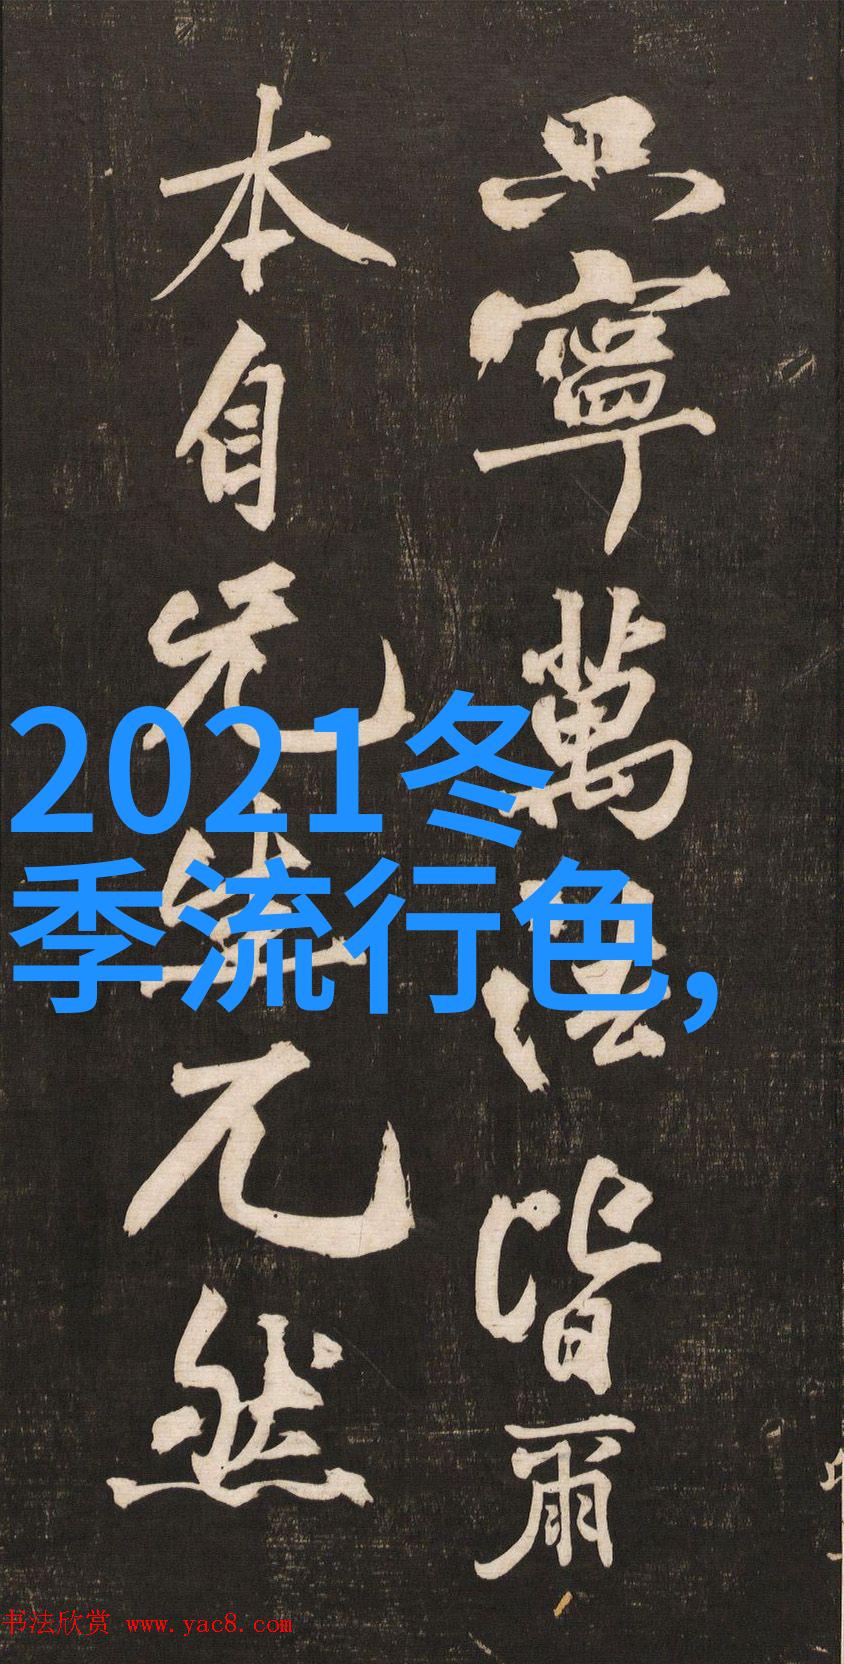 只寧萬法皆爾
本自无生兀然
2021冬
季流行色,
书法欣赏 www.yac8.com